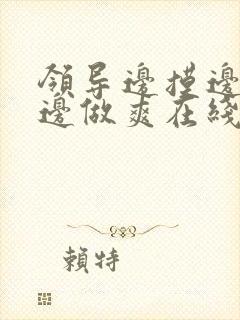 領导邊摸邊
邊做爽在綫
賴特